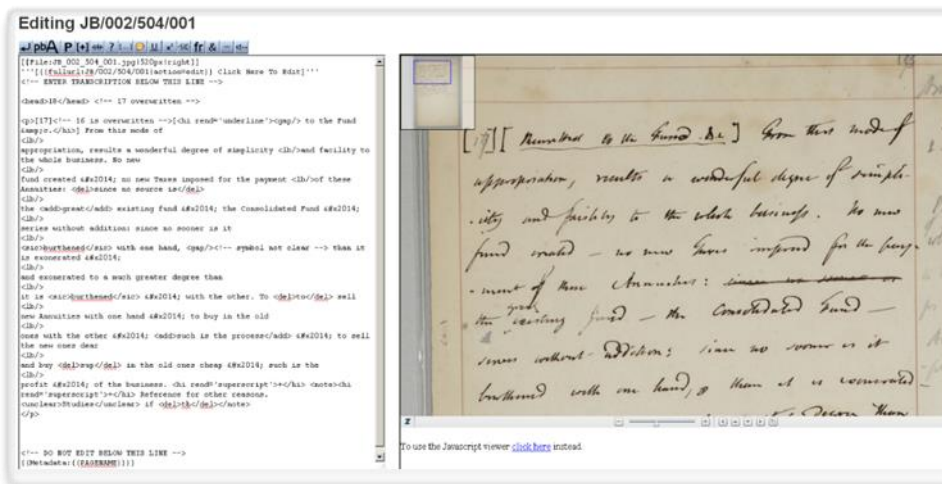 Editing JB/002/504/001
[[File:JB_002_504_001.jpg|520px|right]]
'''[{{fullurl:JB/002/504/001|action=edit}} Click Here To Edit]'''
<!-- ENTER TRANSCRIPTION BELOW THIS LINE -->
<head>18</head> <!-- 17 overwritten -->
<p>[17]<!-- 16 is overwritten -->[<hi rend='underline'><gap/> to the Fund
&amp;c.</hi>] From this mode of
<lb/>
appropriation, results a wonderful degree of simplicity <lb/>and facility to
the whole business. No new
<lb/>
fund created &#x2014; no new Taxes imposed for the payment <lb/>of these
Annuities: <del>since no source is</del>
<lb/>
the <add>great</add> existing fund &#x2014; the Consolidated Fund &#x2014;
series without addition: since no sooner is it
<lb/>
<sic>burthened</sic> with one hand, <gap/><!-- symbol not clear --> than it
is exonerated &#x2014;
<lb/>
and exonerated to a much greater degree than
<lb/>
it is <sic>burthened</sic> &#x2014; with the other. To <del>to</del> sell
<lb/>
new Annuities with one hand &#x2014; to buy in the old
<lb/>
ones with the other &#x2014; <add>such is the process</add> &#x2014; to sell
the new ones dear
<lb/>
and buy <del>sup</del> in the old ones cheap &#x2014; such is the
<lb/>
profit &#x2014; of the business. <hi rend='superscript'>+</hi> <note><hi
rend='superscript'>+</hi> Reference for other reasons.
<unclear>Studies</unclear> if <del>th</del></note>
</p>
<!-- DO NOT EDIT BELOW THIS LINE -->
{{Metadata:{{PAGENAME}}}}
[17] [ to the Fund &c ] From this mode of
appropriation, results a wonderful degree of simpli-
-city and facility to the whole business. No new
fund created — no new Taxes imposed for the pay-
-ment of these Annuities: since no source is
great
the existing fund — the Consolidated Fund —
serves without addition: since no sooner is it
burthened with one hand, than it is exonerated
than
To use the Javascript viewer click here instead.